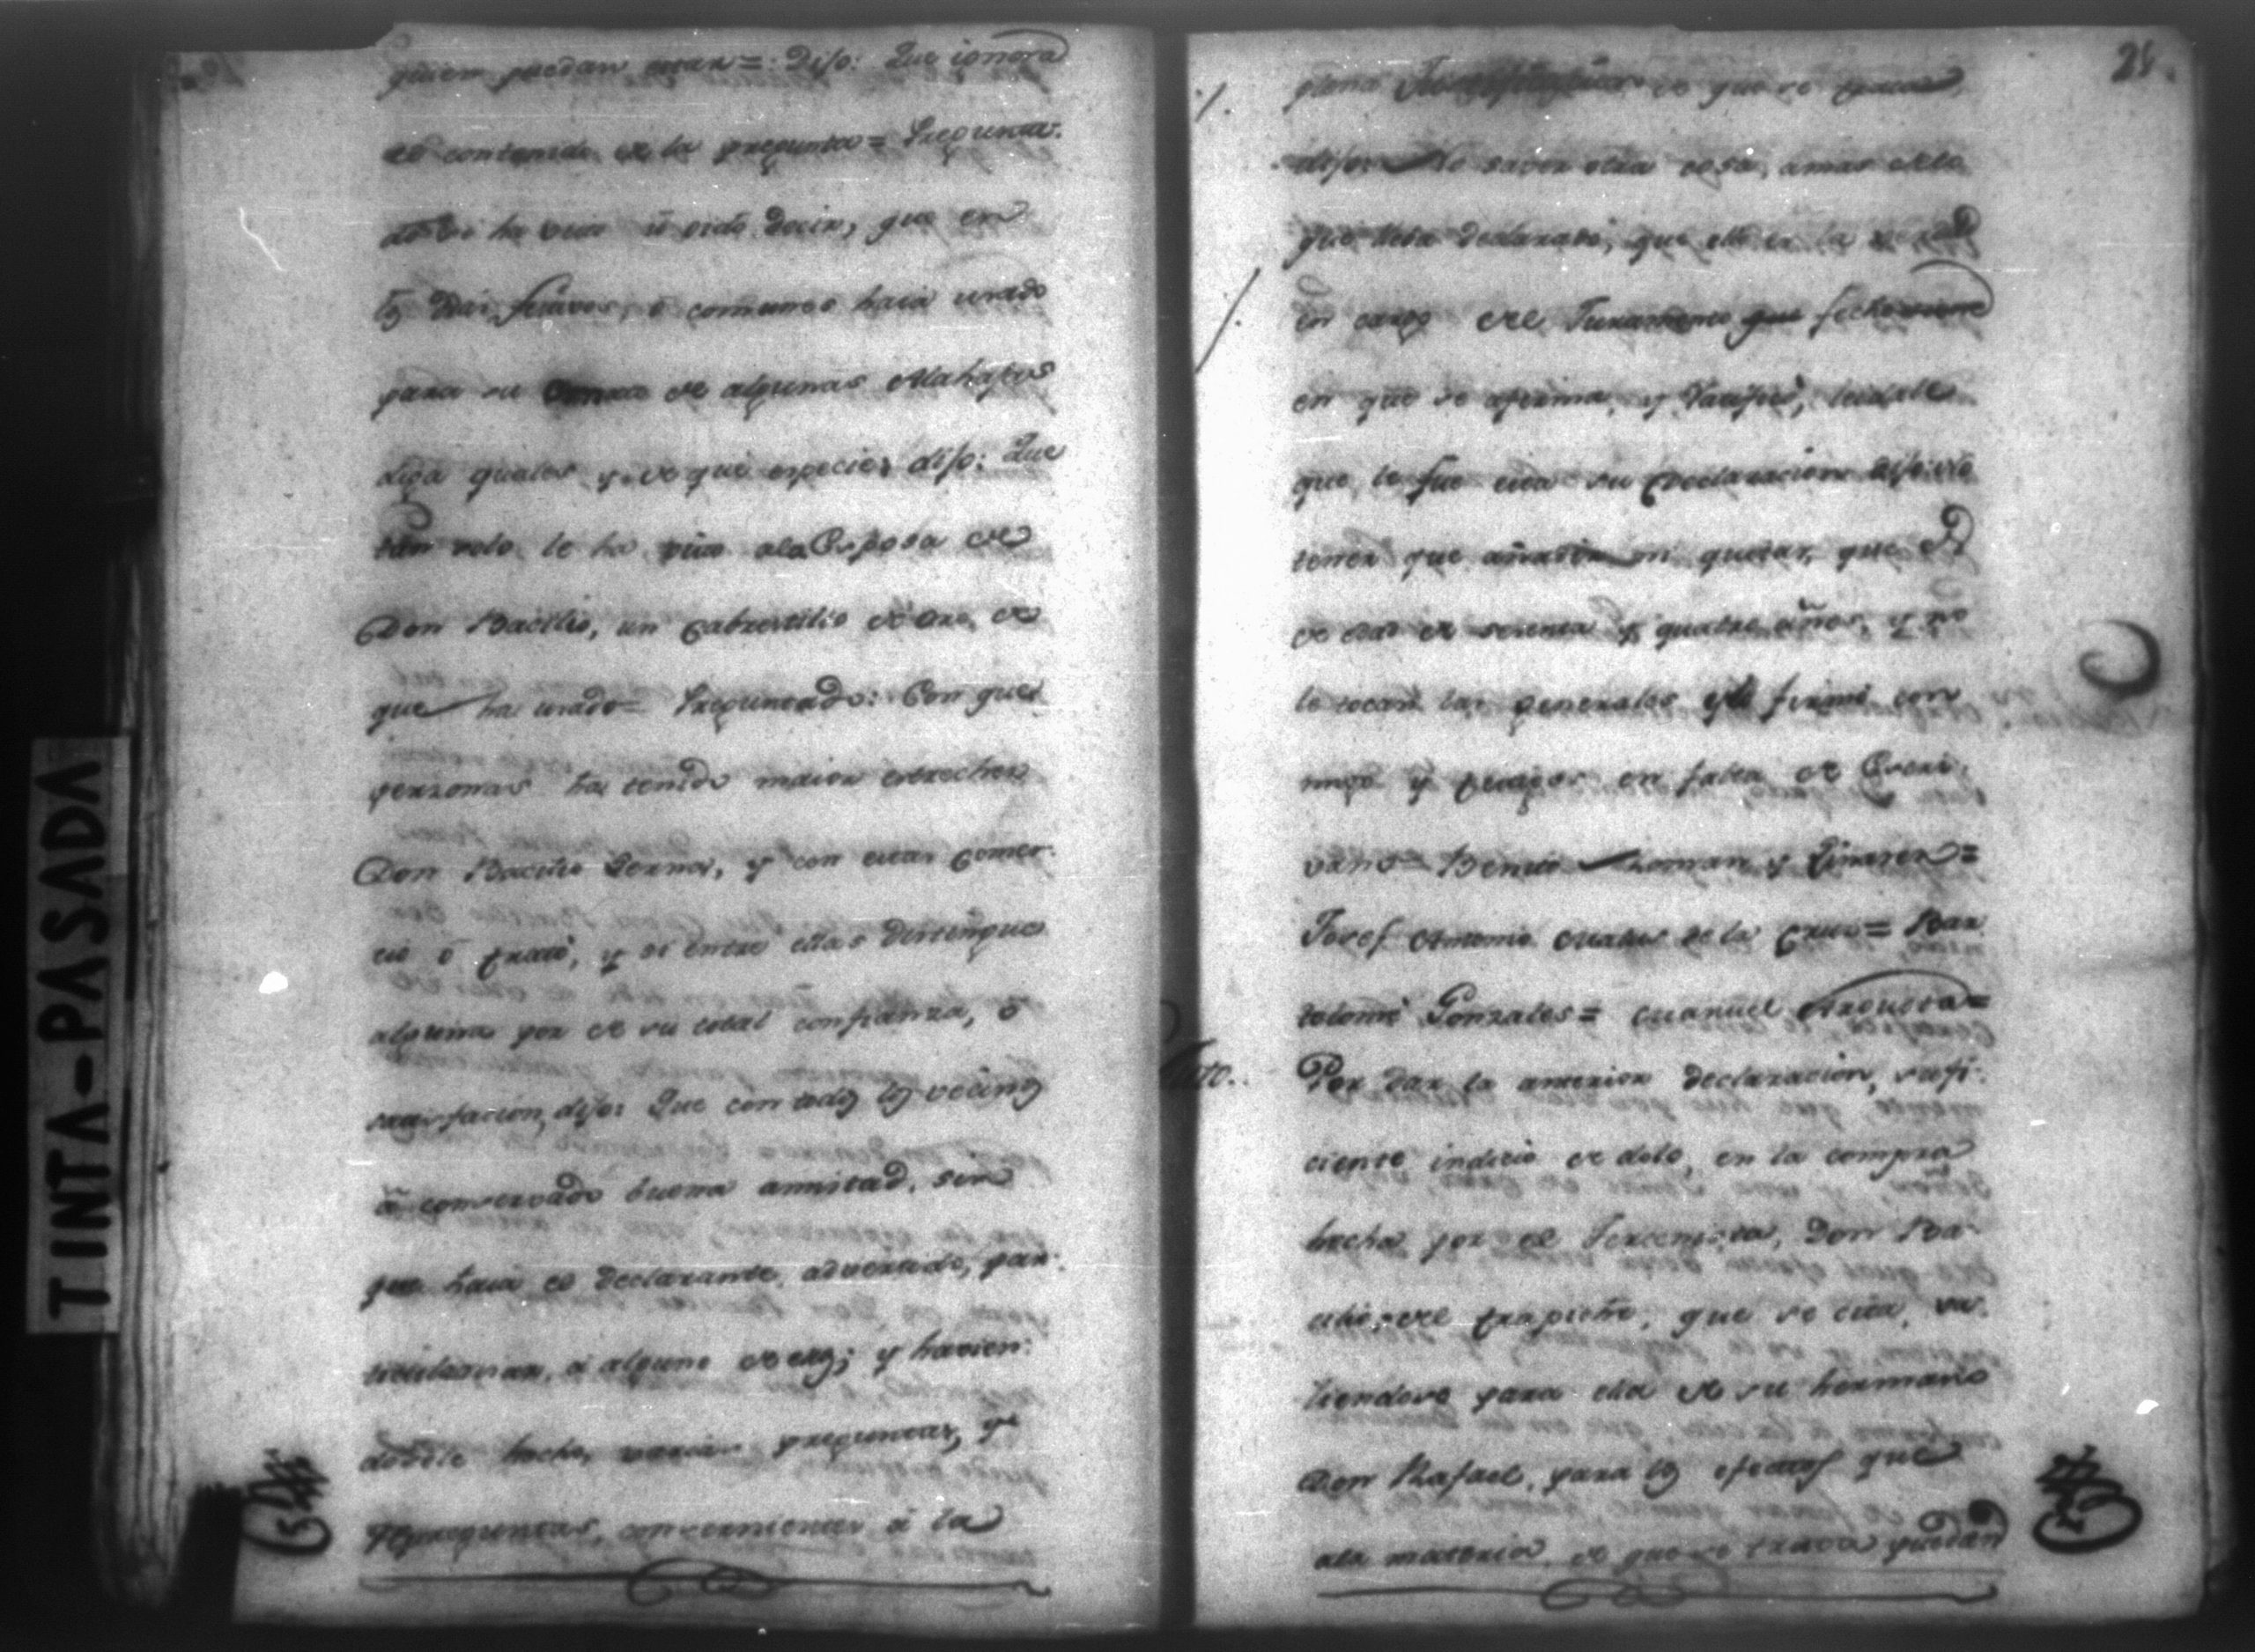 quien puedan usar=: Dijo: Que ignora
el contenido de la pregunta= Pregunta-
do si ha visto ú oido decir, que en
los dias festivos, ó comunes haia usado
para su de algunas Alahajas
diga quales y de que especie; dijo: Que
tan solo le ha visto ala Esposa de
Don Bacilio, un Cabrestillo de oro, de
que ha usado= Preguntado: Con que
personas ha tenido maior estreches
Don Bacilio Serna, y con estas Comer-
cio ó trato, y si entre ellas distingue
alguna por de su total confianza, ó
satisfacion, dijo: Que con todos los vecinos
á conservado buena amistad, sin
que haia el declarante advertido, par-
ticularisar, á alguno de ellos; y havien-
dosele hecho, varias preguntas, y
Repreguntas, concernientes á la
28.
plena de que se trata
dijo: No saver otra cosa, amas de lo
que lleva declarado, que ello es la verdad
en cargo del Juramento que fecho tiene
en que se afirma, y Ratificó, leidale
que le fue esta su Declaracion dijo: no
tener que añadir ni quitar, que es
de edad de sesenta y quatro años, y no
le tocan las generales y lo firmó con
migo y testigos en falta de Escri-
vano= Benito Roman y Linares=
Josef Antonio Matus de la Cruz= Bar
tolomé Gonzales= Manuel Argueta=
Auto..
Por dar la anterior declaracion, sufi-
ciente indicio de dolo, en la compra
hecha por el Tercenista, Don Ba-
cilio, del trapiche, que se cita, va-
liendose para ella de su hermano
Don Rafael, para los efectos que
ala materia de que se trata puedan
TINTA-PASADA